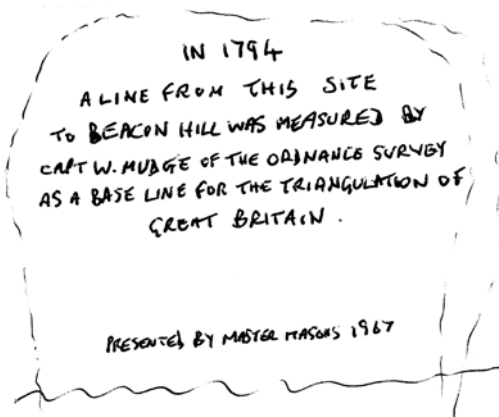 IN 1794
A LINE FROM THIS SITE
TO BEACON HILL WAS MEASURED BY
CAPT W. MUDGE OF THE ORDNANCE SURVEY
AS A BASE LINE FOR THE TRIANGULATION OF
GREAT BRITAIN.
PRESENTED BY MASTER MASONS 1967